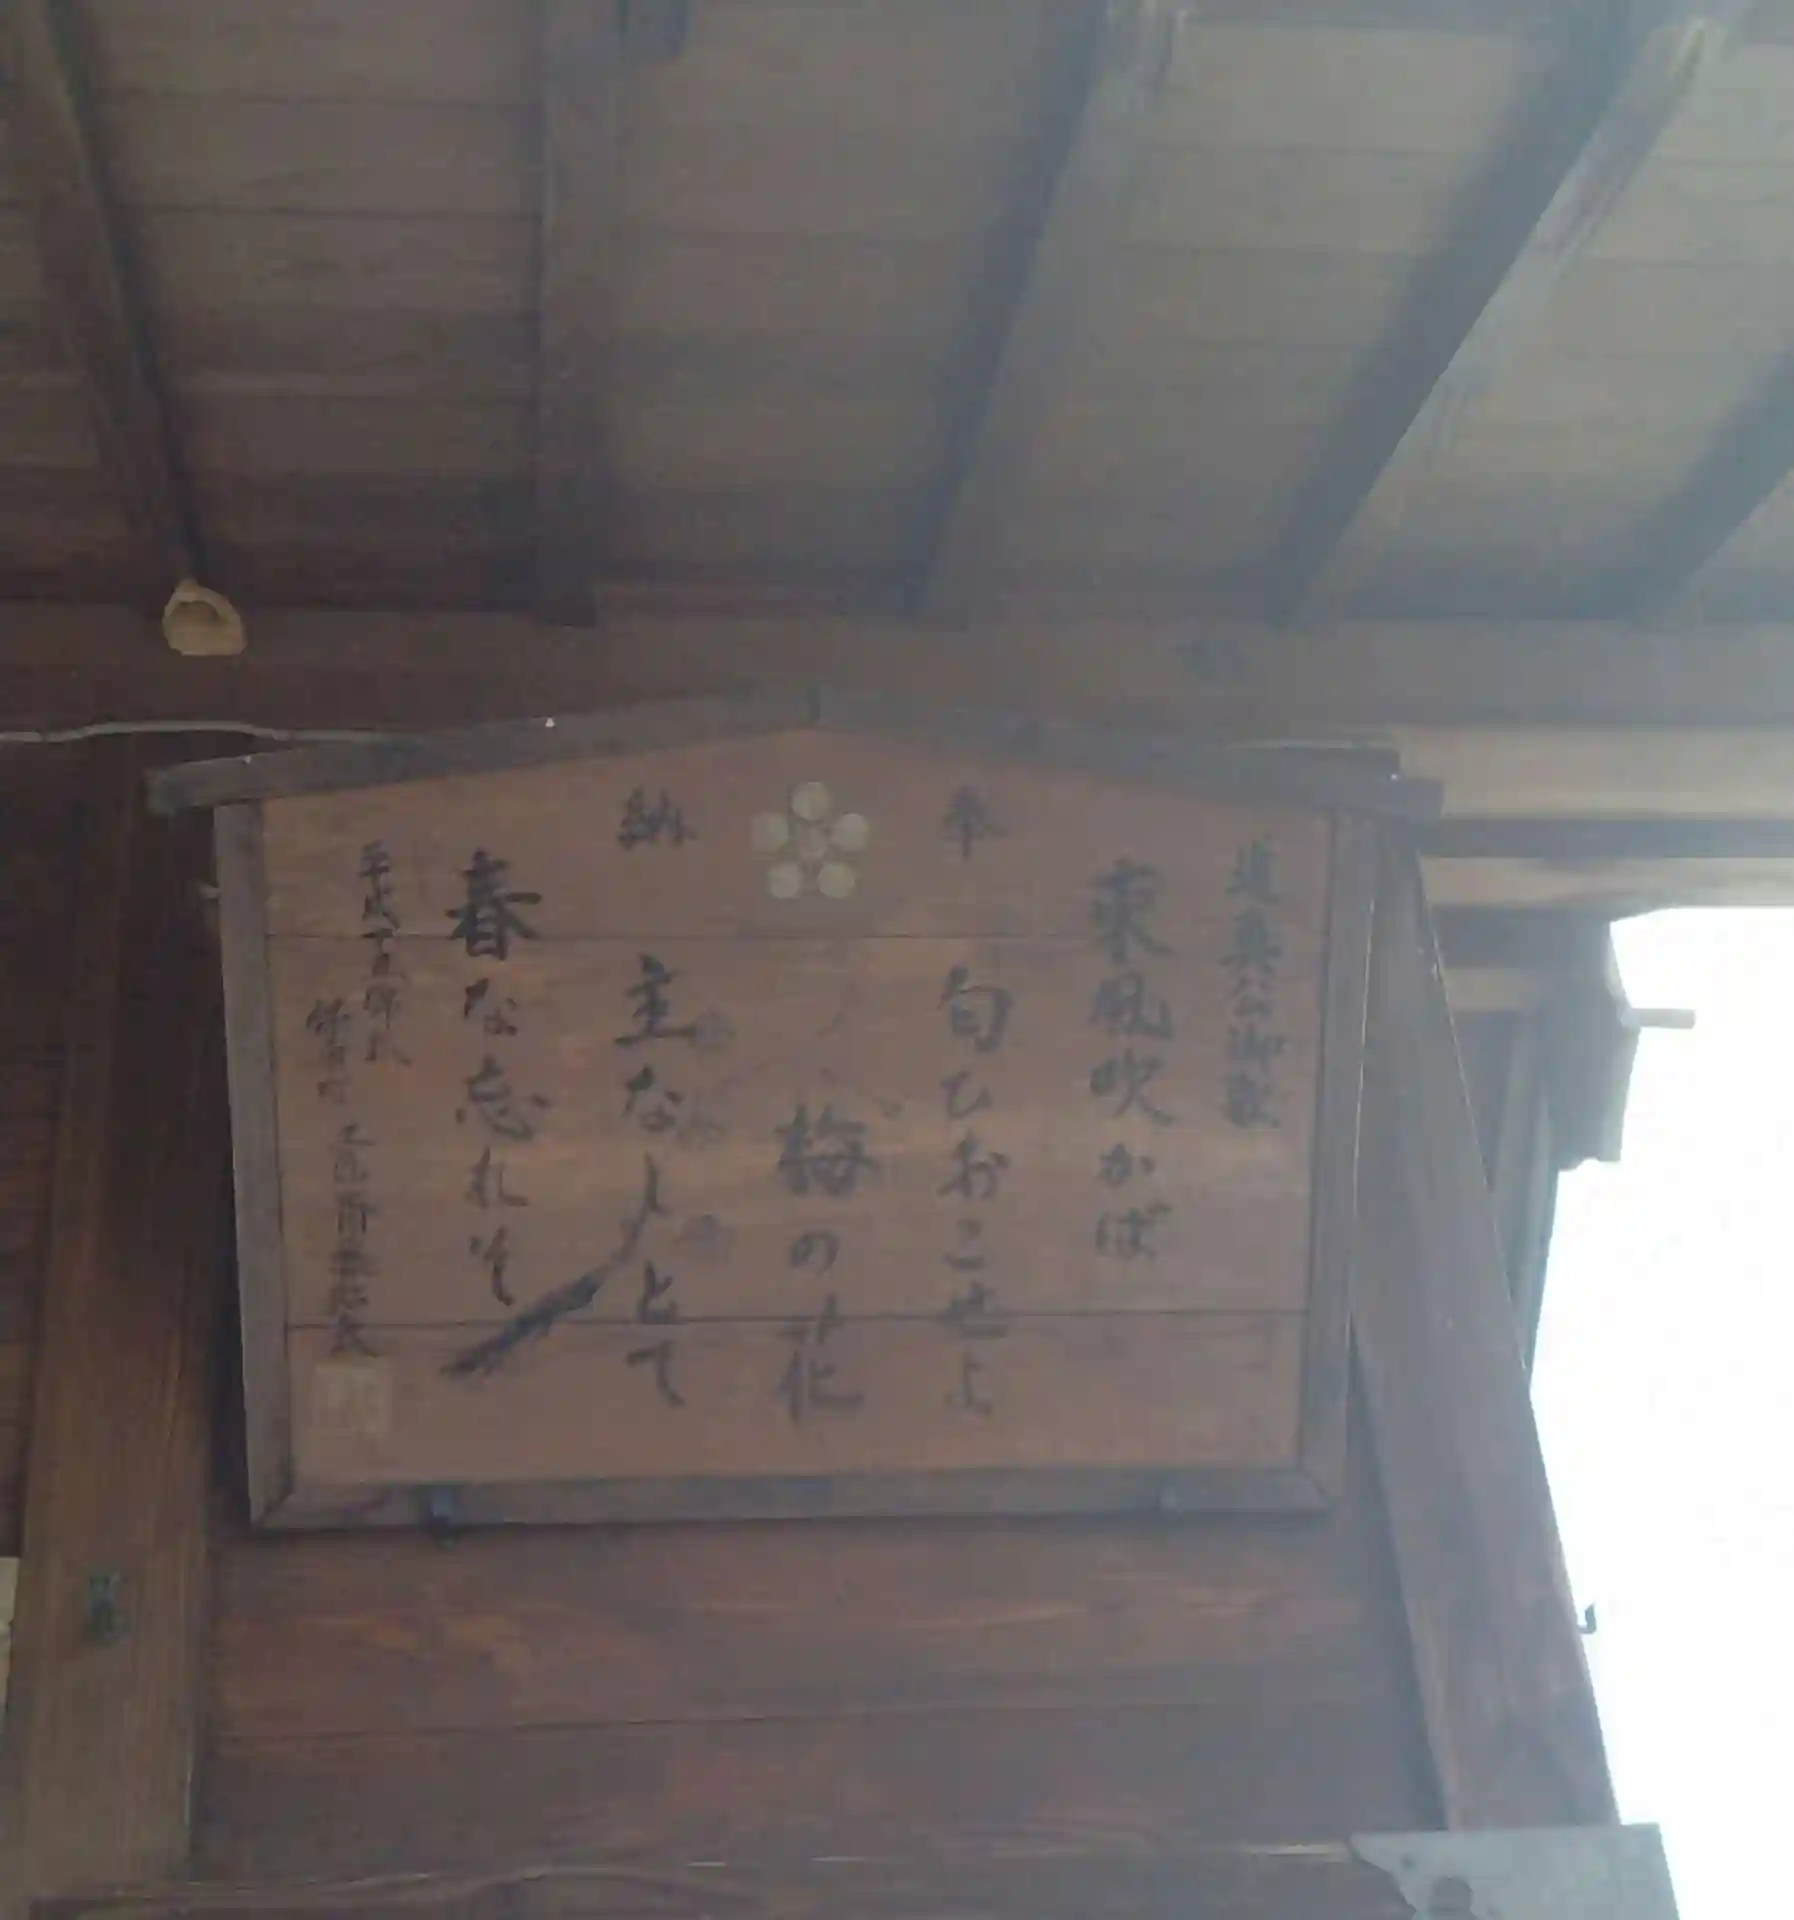 奉納
道真公御歌
東風吹かば
匂ひおこせよ
梅の花
主なしとて
春な忘れそ
平成十五年